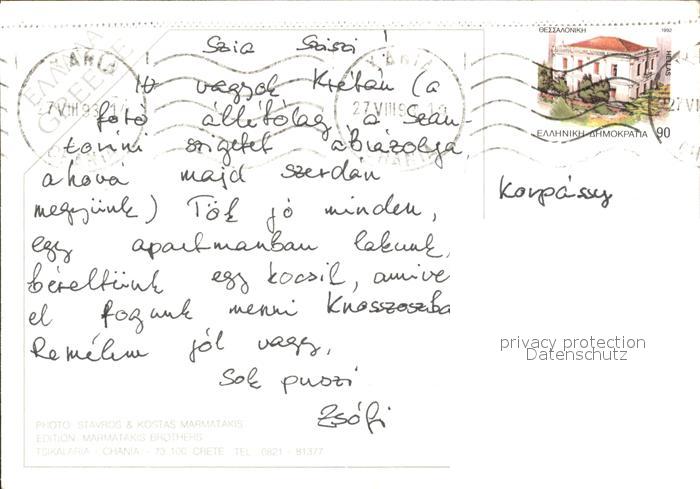 Szia Szászi!
Itt vagyok Krétán (a
fotó állítólag a Szan-
torini szigetet ábrázolja,
ahova majd szerdán
megyünk) Tök jó minden,
egy apartmanban lakunk,
béreltünk egy kocsit, amive
el fogunk menni Knosszoszba
Remélem jól vagy,
Sok puszi
Zsófi
PHOTO: STAVROS & KOSTAS MARMATAKIS
EDITION: MARMATAKIS BROTHERS
TSIKALARIA - CHANIA - 73 100 CRETE TEL. 0821 - 81377
ΕΛΛΑΔΑ
GREECE
ΧΑΝΙΑ
27 VIII 93
CHANIA
ΧΑΝΙΑ
27 VIII 93
CHANIA
ΘΕΣΣΑΛΟΝΙΚΗ 1992
HELLAS
ΕΛΛΗΝΙΚΗ ΔΗΜΟΚΡΑΤΙΑ 90
27 VII
Korpássy
privacy protection
Datenschutz